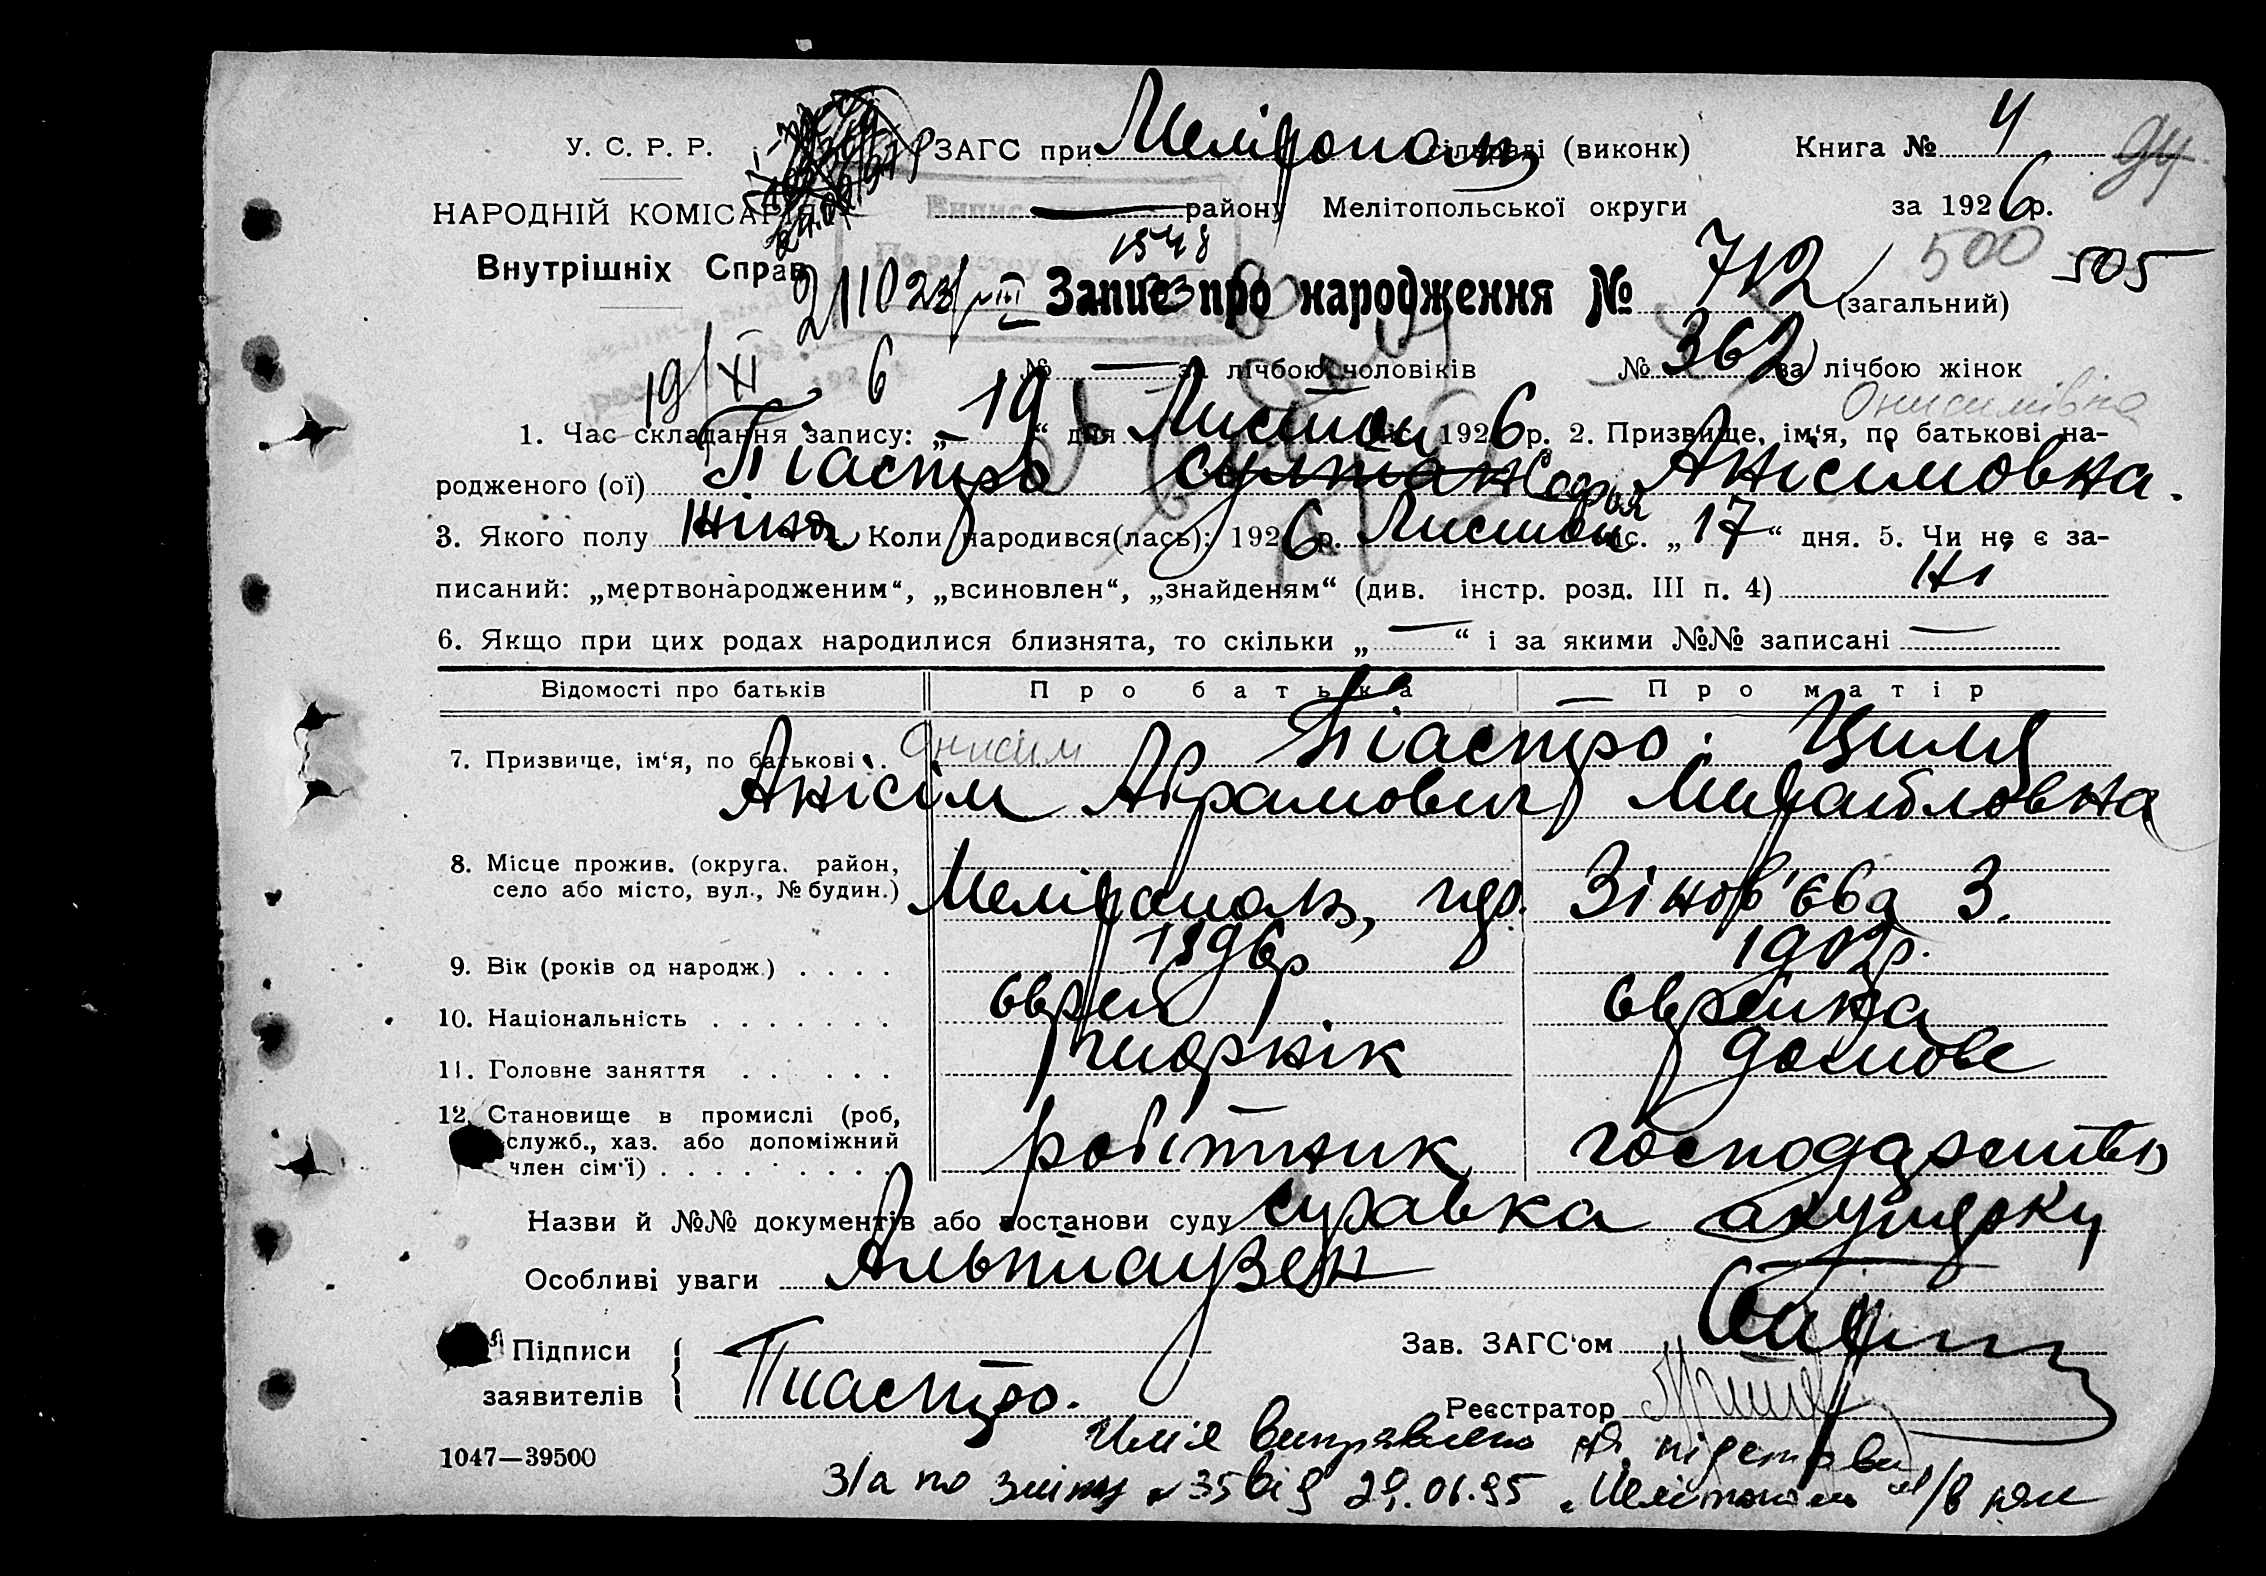 У. С. Р. Р. ЗАГС при Мелітополь сільраді (виконк) Книга № 4 94
НАРОДНІЙ КОМІСАРІЯТ — району Мелітопольської округи за 1926 р.
1548 500 505
Внутрішніх Справ 211023/VIII Запис про народження № 712 (загальний)
19/XI 6 № — за лічбою чоловіків № 362 за лічбою жінок
Онисимівна
1. Час складання запису: „19“ дня Листоп 1926 р. 2. Призвище, ім'я, по батькові на-
родженого (ої) Піастро Султана Софія Анісімовна.
3. Якого полу Жіня Коли народився(лась): 1926 р. Листоп міс. „17“ дня. 5. Чи не є за-
писаний: „мертвонародженим“, „всиновлен“, „знайденям“ (див. інстр. розд. III п. 4) Ні
6. Якщо при цих родах народилися близнята, то скільки „—“ і за якими №№ записані —
Відомості про батьків Про батька Про матір
7. Призвище, ім'я, по батькові Онисим Піастро. Циля
Анісім Абрамович Михайловна
8. Місце прожив. (округа, район,
село або місто, вул., № будин.) Мелітополь, Зінов'єва 3.
9. Вік (років од народж.) 1896р 1902р.
10. Національність єврей єврейка
11. Головне заняття домове
12. Становище в промислі (роб,
служб., хаз. або допоміжний робітник господарство
член сім'ї)
Назви й №№ документів або постанови суду справка акушерки
Особливі уваги Альтгаузен
Підписи Зав. ЗАГС'ом
заявителів Пиастро. Реєстратор
Им'я виправлено на підставі
1047—39500
З/а по зміну №35 від 29.06.95 Мелітополь